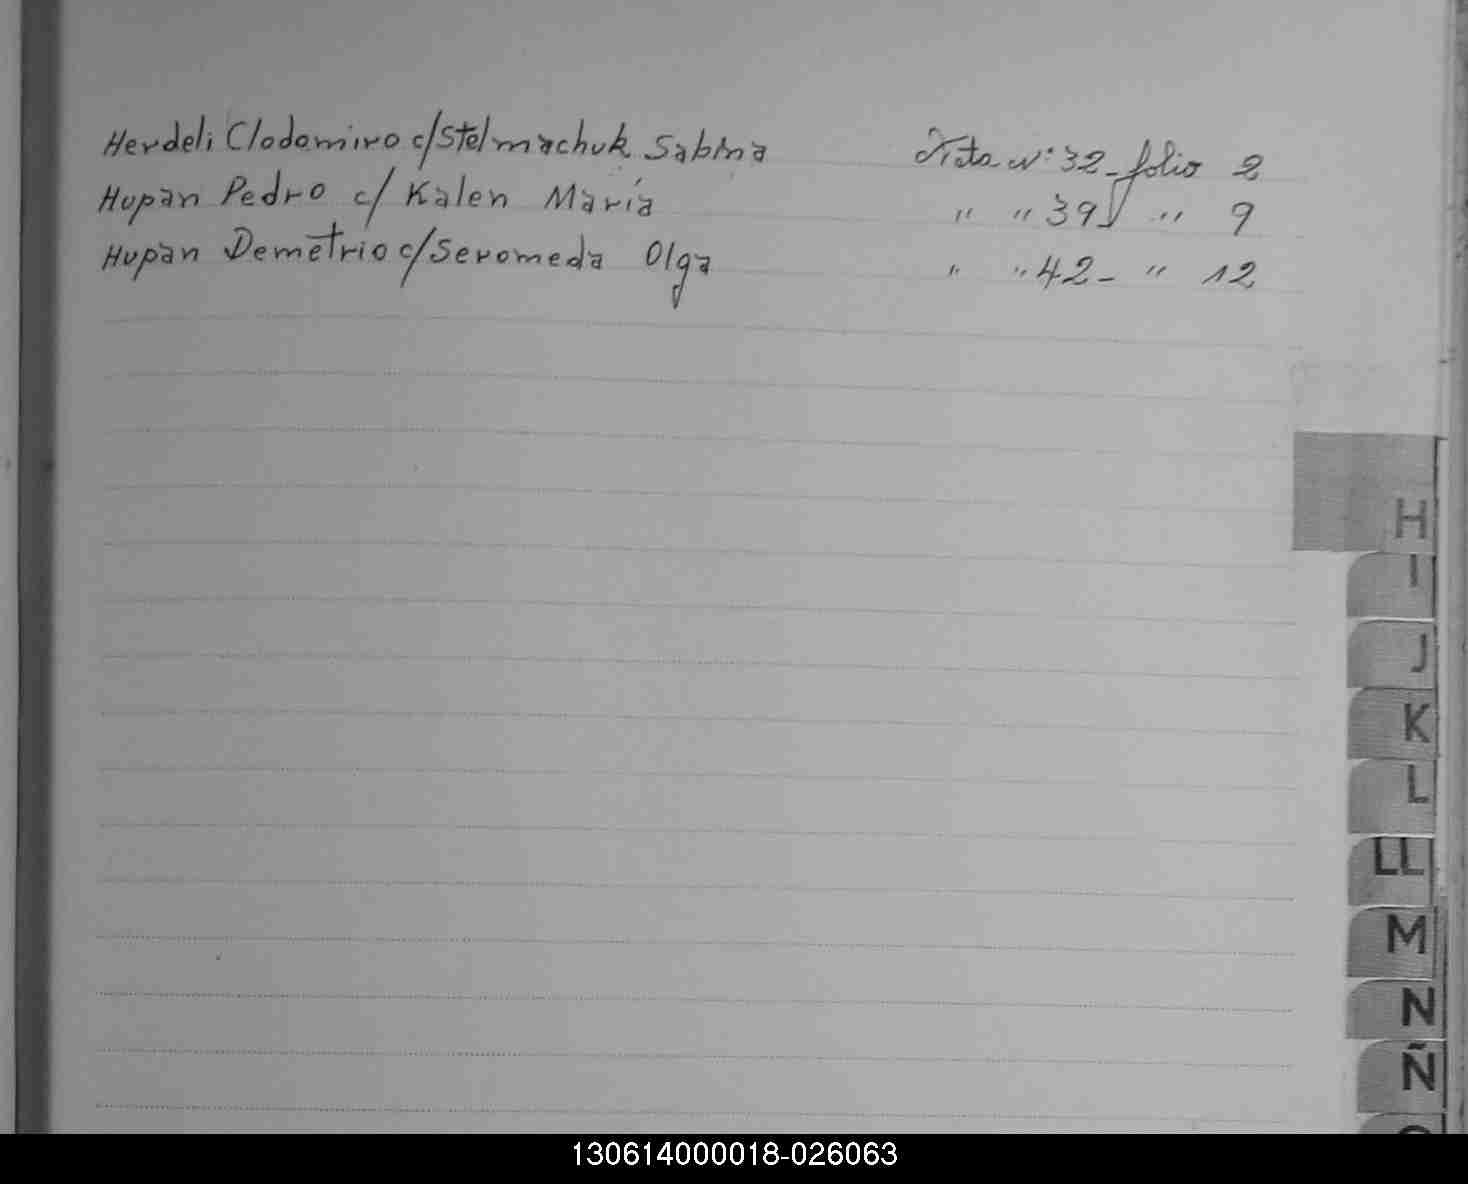 Herdeli Clodomiro c/Stelmachuk Sabina Acta Nº 32 - folio 2
Hupan Pedro c/ Kalen María " " 39 " 9
Hupan Demetrio c/Seromeda Olga " " 42 - " 12
H
I
J
K
L
LL
M
N
Ñ
130614000018-026063